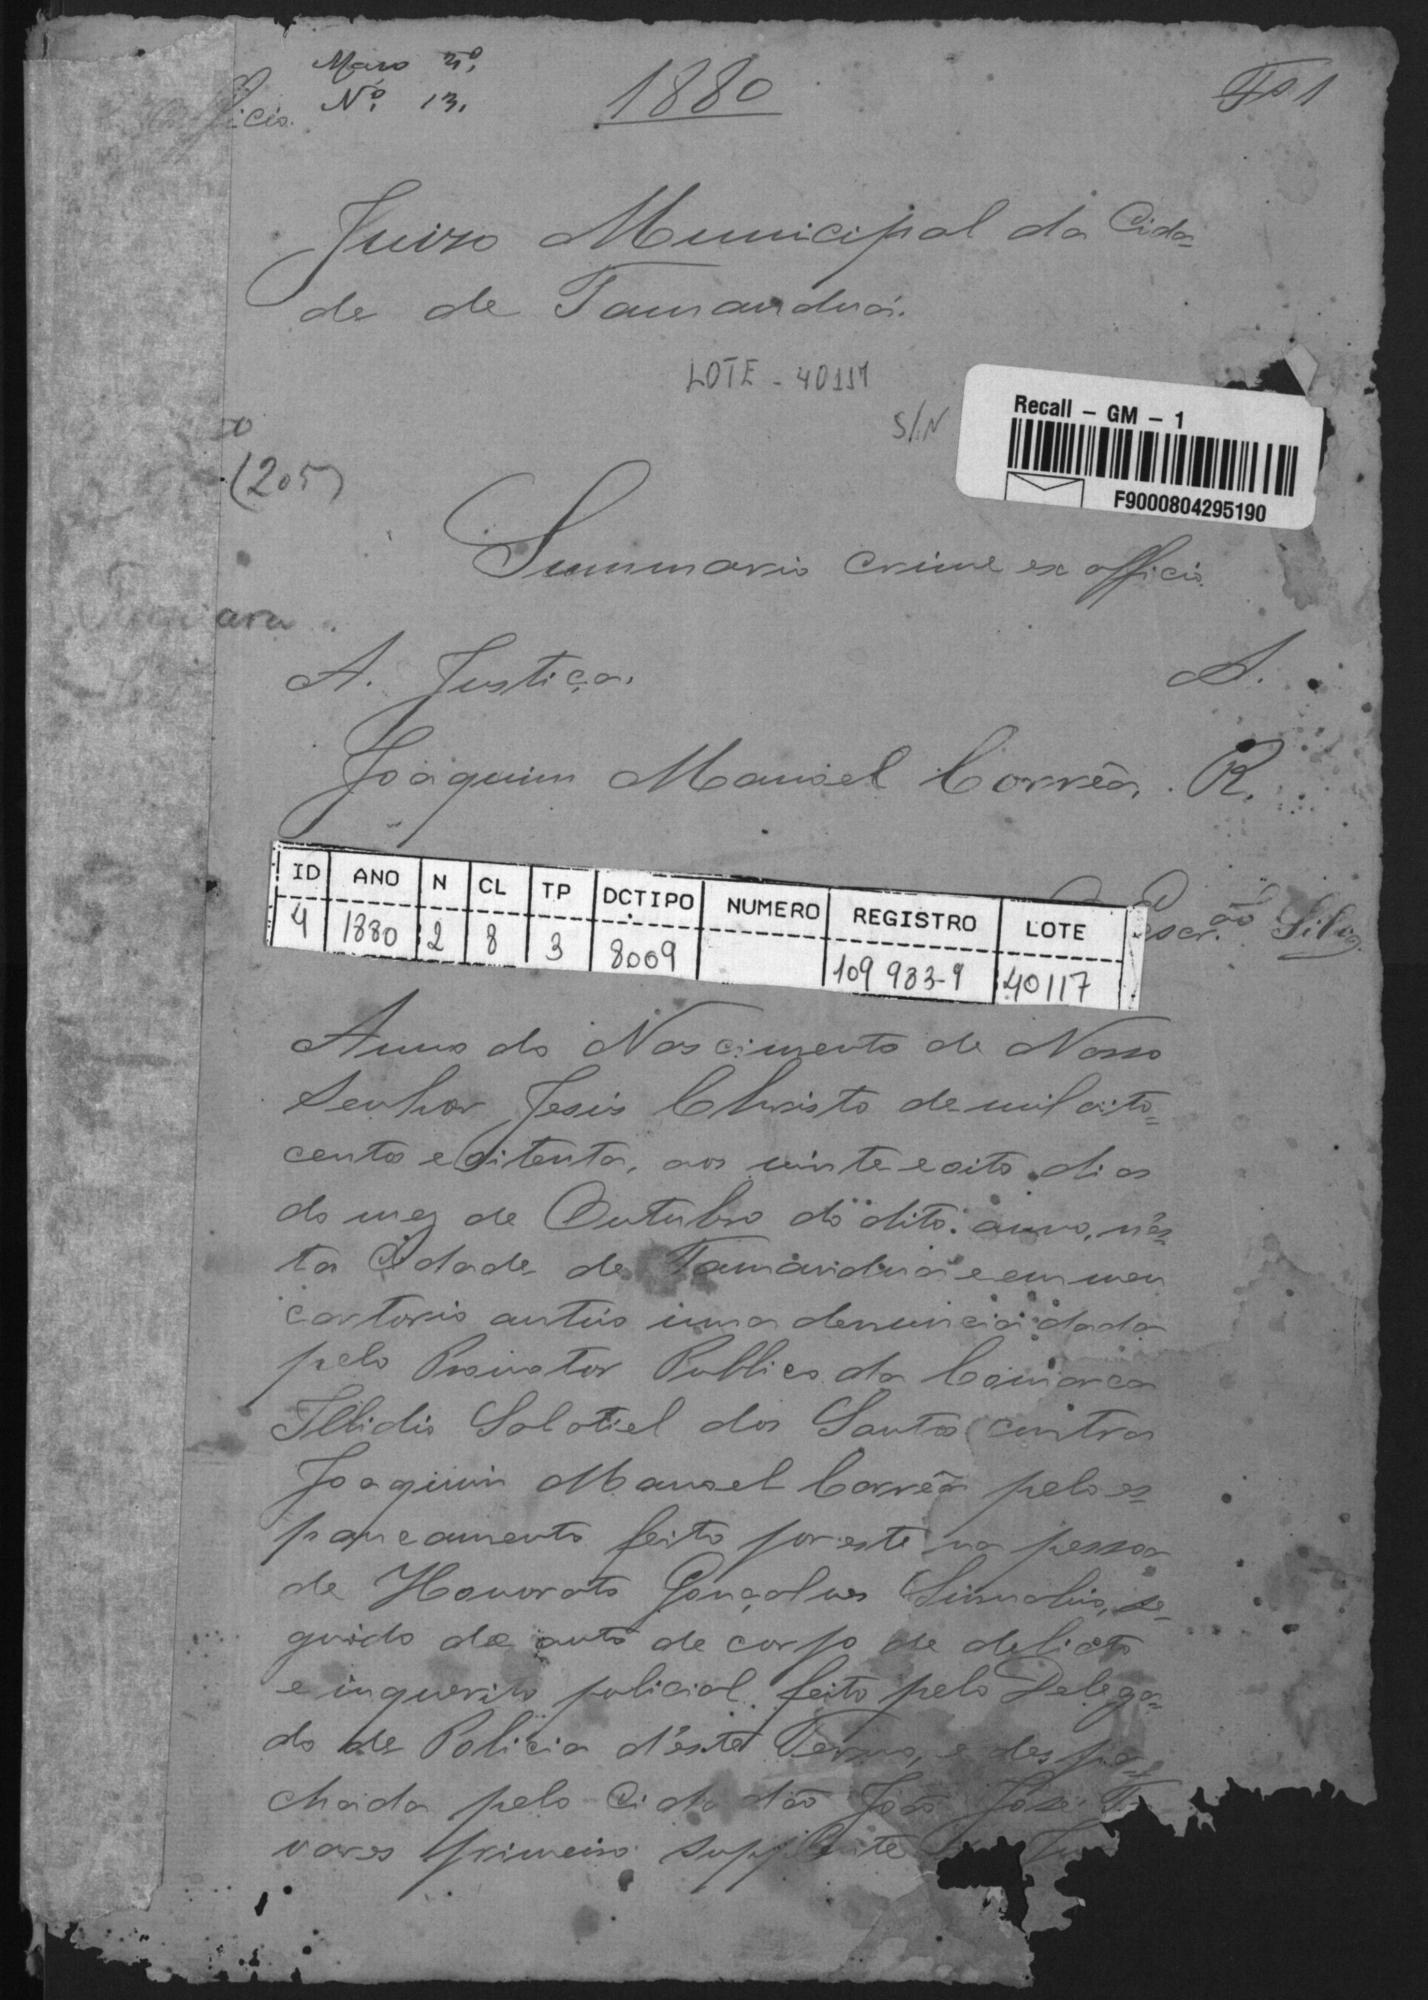 Maço 2º.
Nº. 13.
1880
Fº 1
Juizo Municipal da Cida-
de de Tamanduá.
LOTE - 40117
S/N
Recall – GM – 1
F9000804295190
(205)
Summario crime ex officio
ara
A. Justiça. A.
Joaquim Manoel Corrêa. R.
Escr.ão Silva
ID ANO N CL TP DCTIPO NUMERO REGISTRO LOTE
4 1880 2 8 3 8009 109 983-9 40117
Anno do Nascimento de Nosso
Senhor Jesus Christo de mil oito-
cento e oitenta, aos vinte e oito dias
do mez de Outubro do dito anno, n'es-
ta Cidade de Tamanduá e em meu
cartorio autúo uma denuncia dada
pelo Promotor Publico da Comarca
Illidio Salatiel dos Santos contra
Joaquim Manoel Corrêa pelo es-
pancamento feito por este na pessoa
de Honorato Gonçalves se-
guido de auto de corpo de delicto
e inquerito policial feito pelo Delega-
do de Policia d'este Termo, e despa-
chada pelo Cidadão João José Ta-
vares primeiro supplente